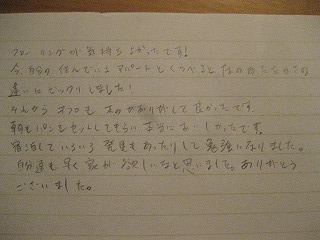 フローリングが気持ちよかったです!
今、自分の住んでいるアパートとくらべると、なのあたたかさの
違いにビックリしました!
それからオフロも木のかおりがして良かったです。
朝もパンをセットしてもらい本当においしかったです。
宿泊していろいろ発見もあったりして勉強になりました。
自分達も早く家が欲しいなと思いました。ありがとう
ございました。